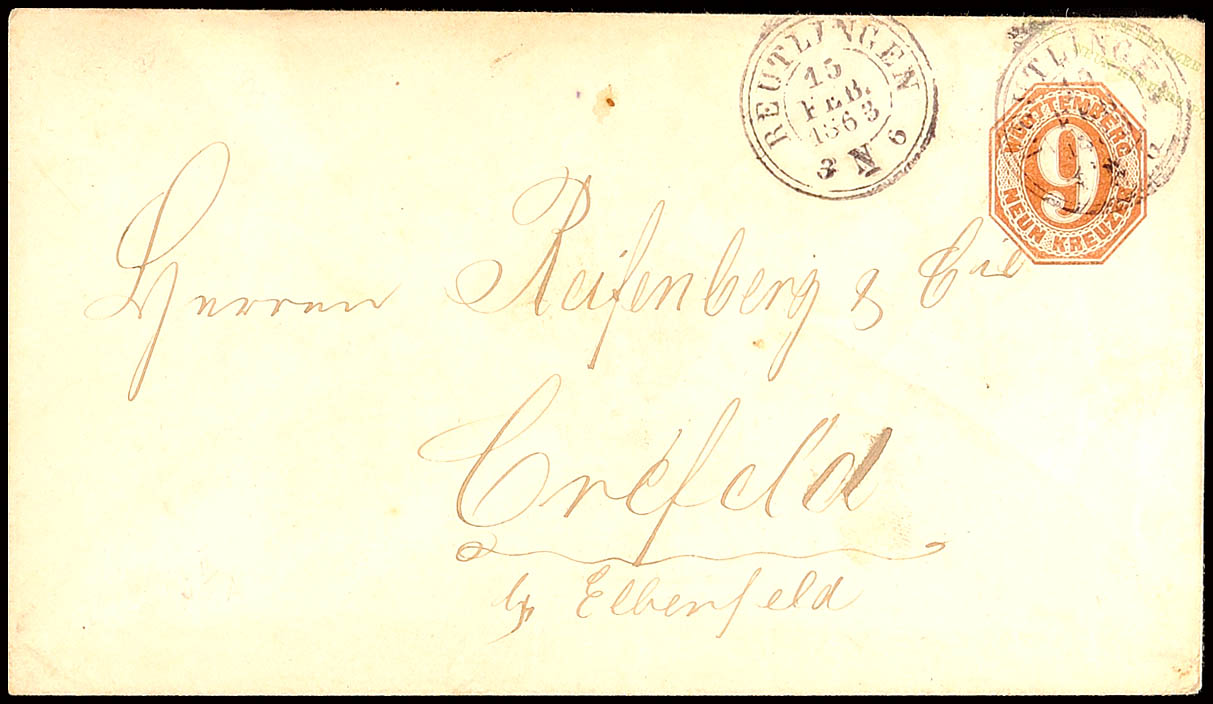 REUTLINGEN
15
FEB.
1863
3 N 6
UTLINGEN
WÜRTTEMBERG
9
NEUN KREUZER
Herren Reifenberg & Cie
Crefeld
by Elberfeld